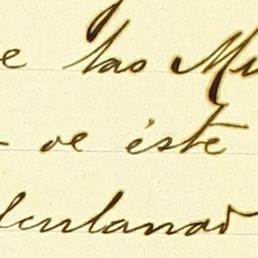 e las Mu
de éste
lculanad